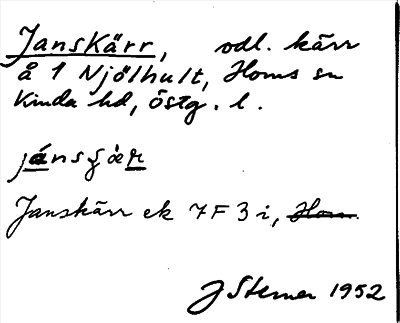 Janskärr, odl. kärr
å 1 Njölhult, Horns sn
Kinda hd, Östg. l.
Janskärr ek 7F3i, Horn
J Sterner 1952